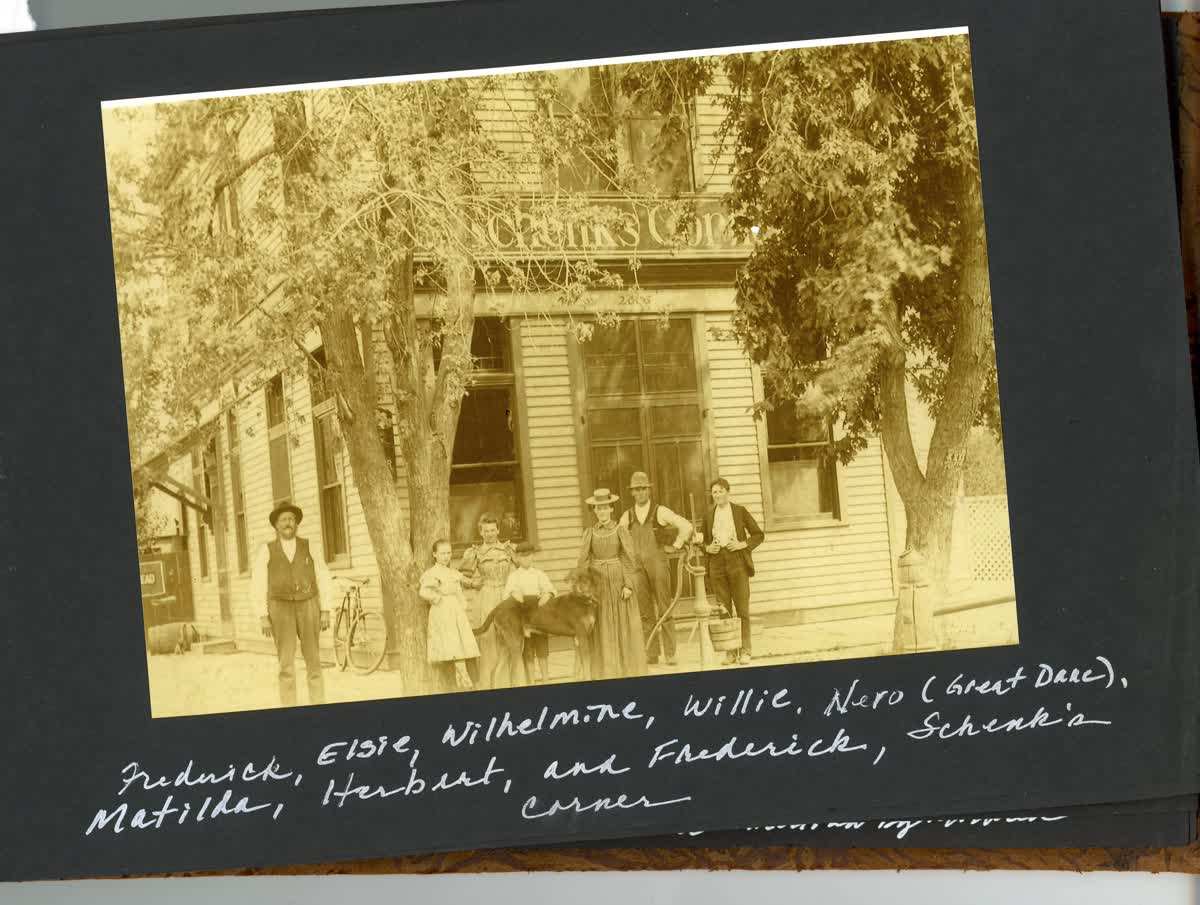 Schenk's Corn
2006
EAD
Frederick, Elsie, Wilhelmine, Willie, Nero (Great Dane),
Matilda, Herbert, and Frederick, Schenk's
corner
by